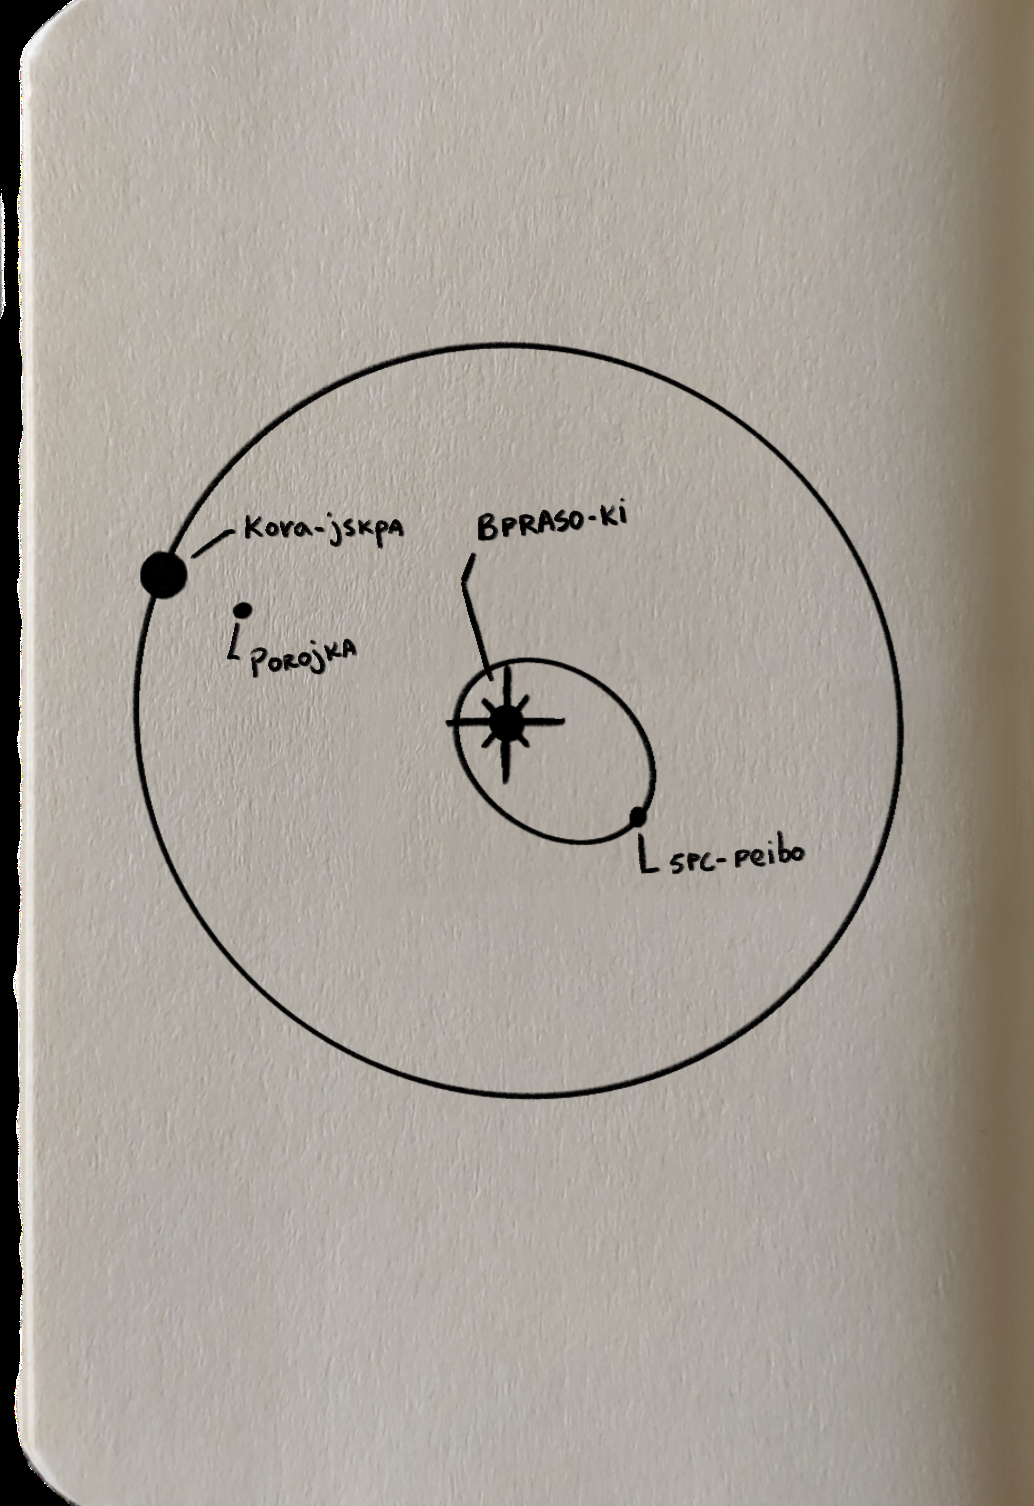 Kova-jskpA
BPRASO-Ki
POROjKA
SPC-Peibo